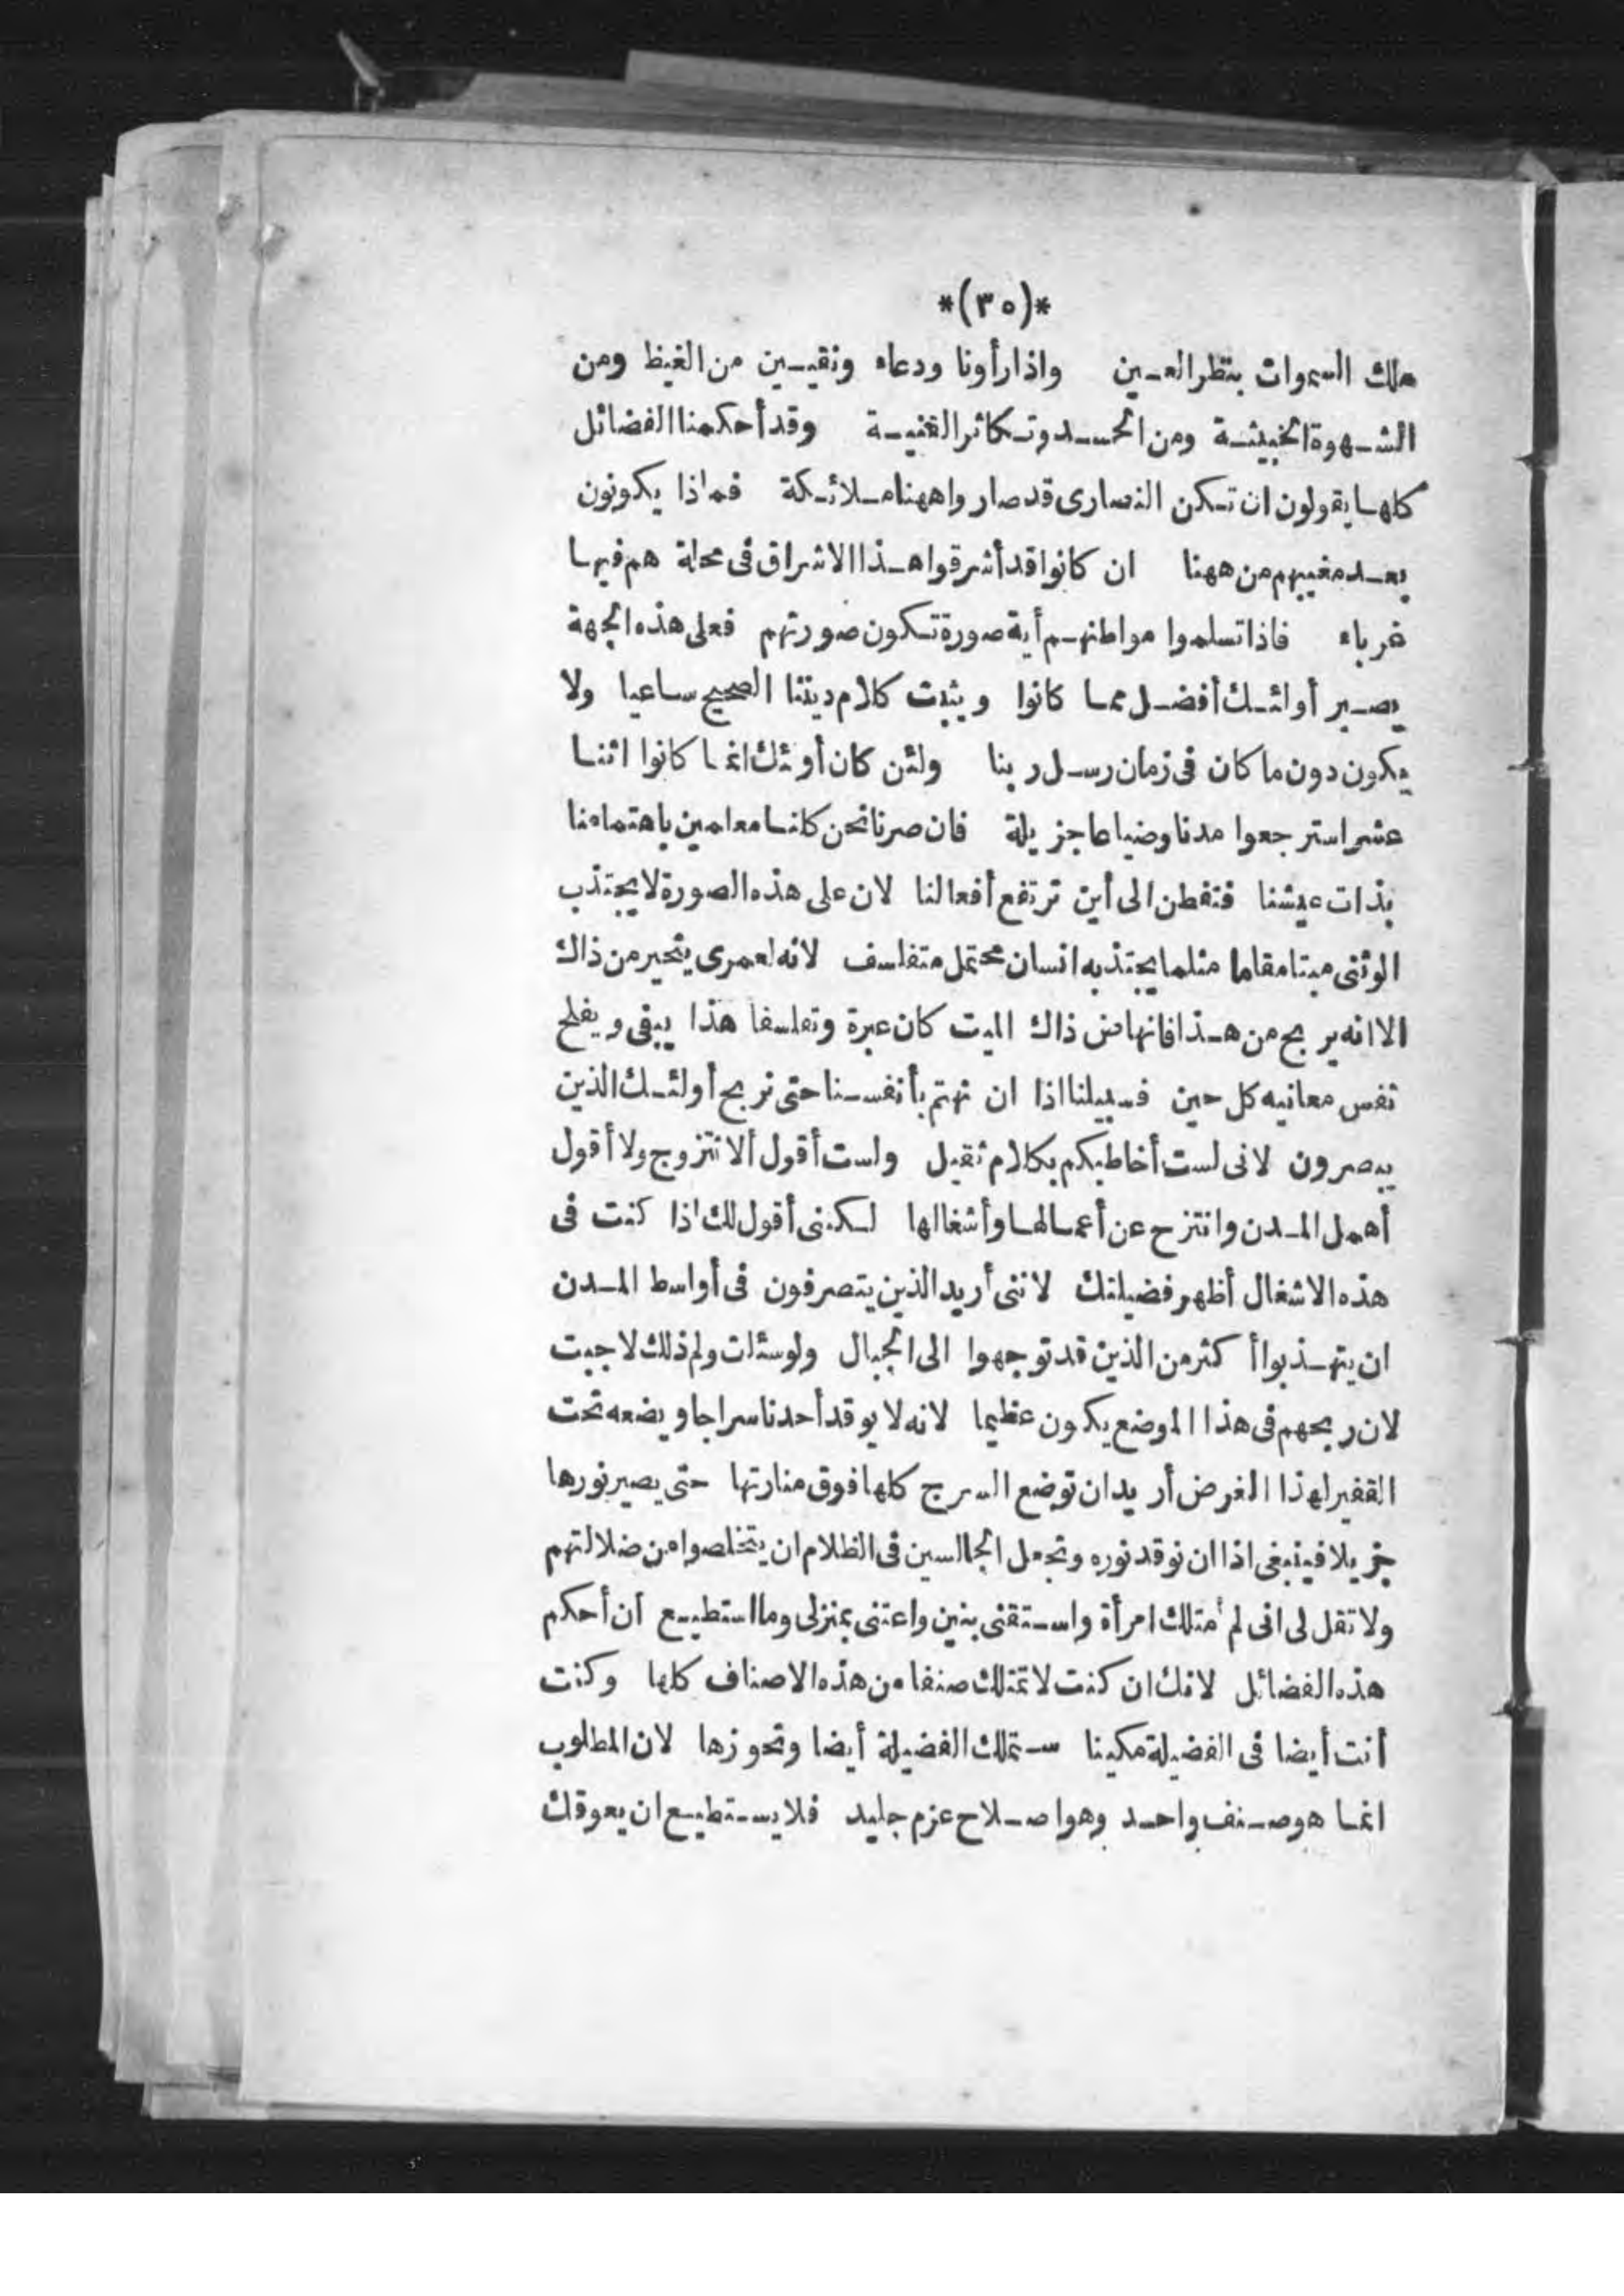 *(٣٥)*
ملك السموات بنظر العين واذا رأونا ودعاء ونقيين من الغيظ ومن
الشهوة الخبيثة ومن الحسد وتكاثر الغنية وقد أحكمنا الفضائل
كلها يقولون ان تكن النصارى قد صاروا ههنا ملائكة فماذا يكونون
بعد مغيبهم من ههنا ان كانوا قد أشرقوا هذا الاشراق فى محلة هم فيها
غرباء فاذا تسلموا مواطنهم أية صورة تكون صورتهم فعلى هذه الجهة
يصير أولئك أفضل مما كانوا ويثبت كلام ديننا الصحيح ساعيا ولا
يكون دون ما كان فى زمان رسل ربنا ولئن كان أوئك انما كانوا اثنا
عشر استرجعوا مدنا وضياعا جزيلة فان صرنا نحن كلنا معلمين باهتمامنا
بذات عيشنا فتفطن الى أين ترتفع أفعالنا لان على هذه الصورة لا يجتذب
الوثنى ميتا مقاما مثلما يجتذبه انسان محتمل متفلسف لانه لعمرى يتحير من ذاك
الا انه يربح من هذا فانهاض ذاك الميت كان عبرة وتفلسفا هذا يبقى ويفلح
نفس معانيه كل حين فسبيلنا اذا ان نهتم بأنفسنا حتى نربح أولئك الذين
يبصرون لانى لست أخاطبكم بكلام ثقيل ولست أقول ألا تتزوج ولا أقول
أهمل المدن وانتزح عن أعمالها وأشغالها لكننى أقول لك اذا كنت فى
هذه الاشغال أظهر فضيلتك لاننى أريد الذين يتصرفون فى أواسط المدن
ان يتهذبوا أكثر من الذين قد توجهوا الى الجبال ولو سئلت ولم ذلك لاجبت
لان ربحهم فى هذا الموضع يكون عظيما لانه لا يوقد أحدنا سراجا ويضعه تحت
القفير لهذا الغرض أريد ان توضع السرج كلها فوق منارتها حتى يصير نورها
جزيلا فينبغى اذا ان نوقد نوره وتجعل الجالسين فى الظلام ان يتخلصوا من ضلالتهم
ولا تقل لى انى لم أمتلك امرأة واستقنى بنين واعتنى بمنزلى وما استطيع ان أحكم
هذه الفضائل لانك ان كنت لا تمتلك صنفا من هذه الاصناف كلها وكنت
أنت أيضا فى الفضيلة مكينا ستملك الفضيلة أيضا وتحوزها لان المطلوب
انما هو صنف واحد وهو اصلاح عزم جليد فلا يستطيع ان يعوقك